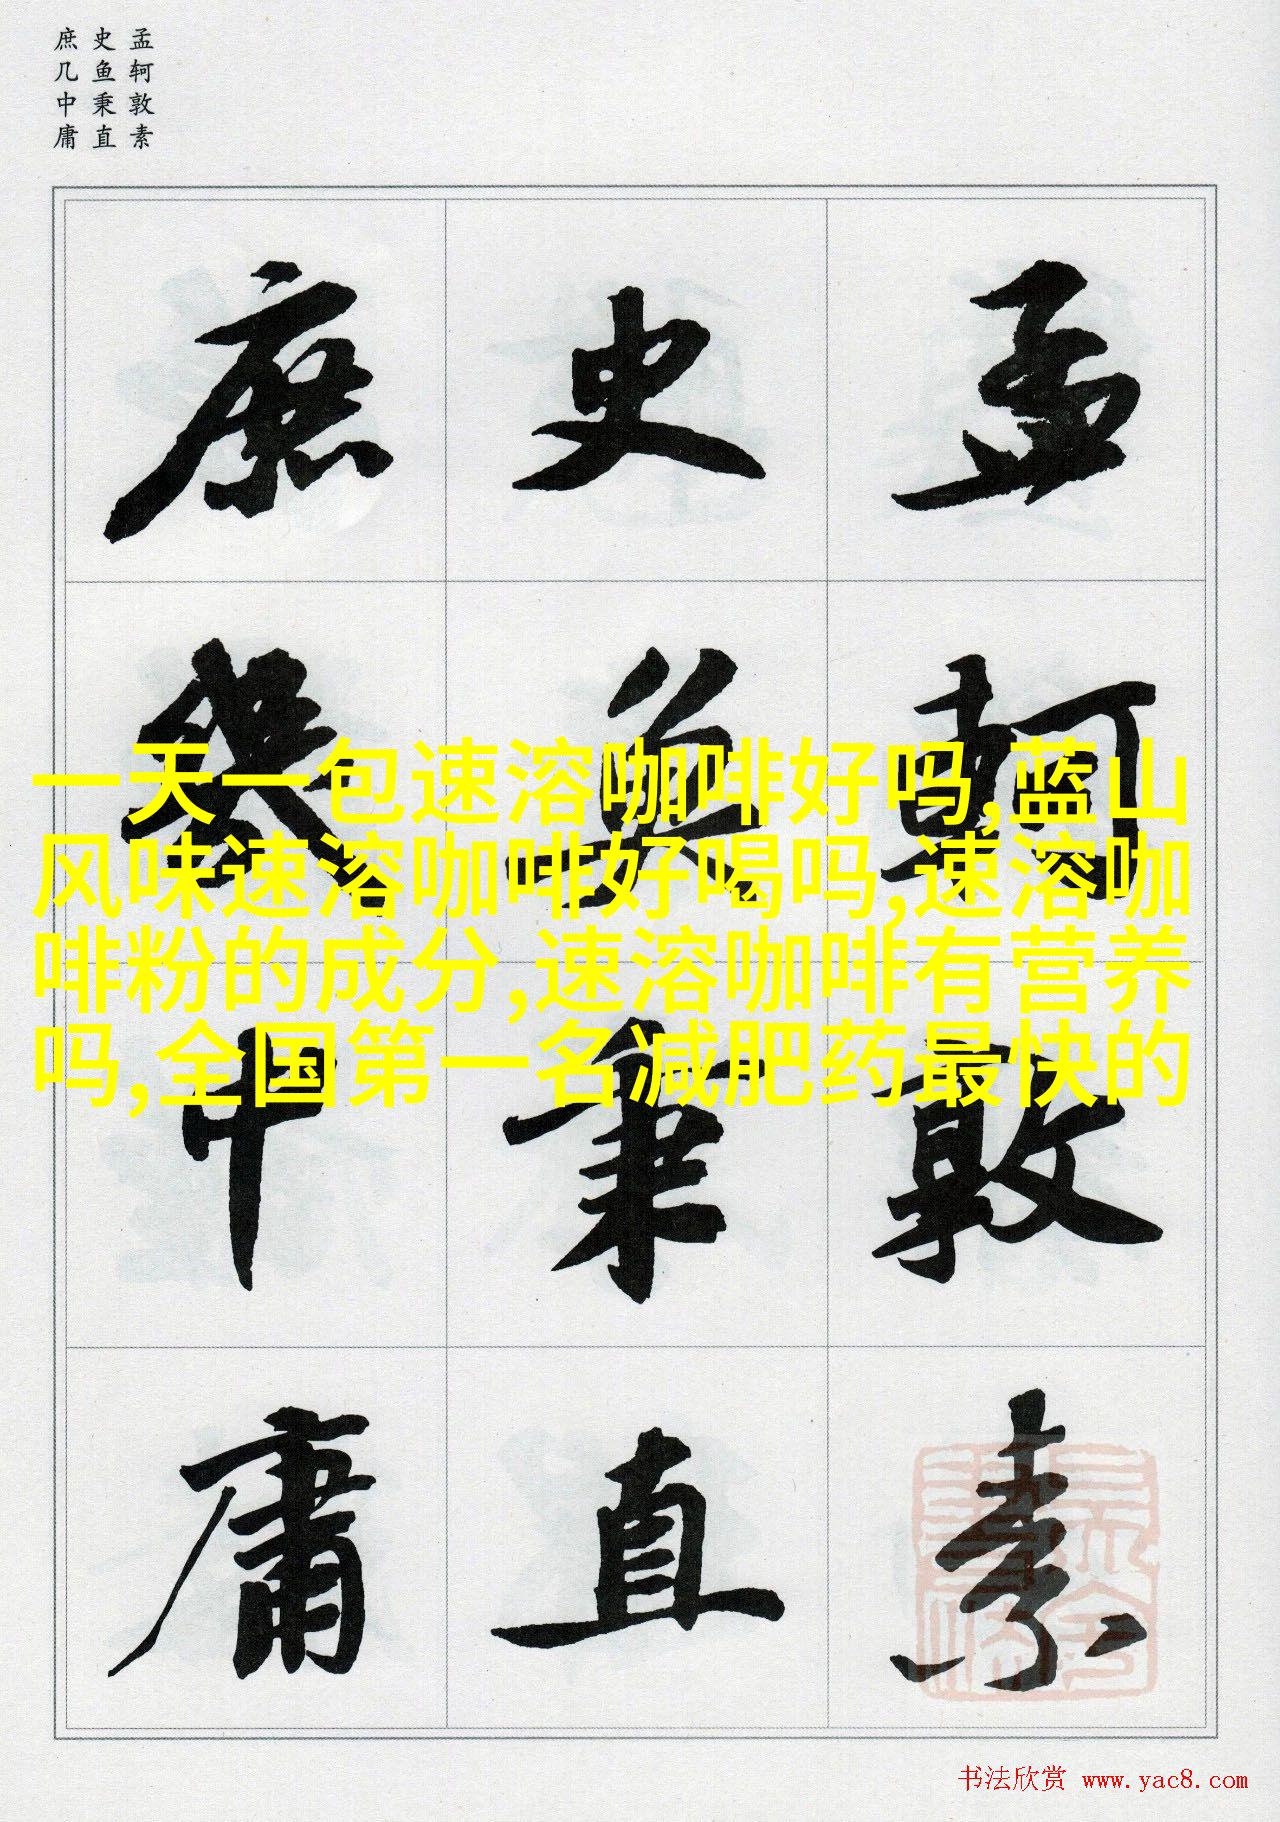 孟轲敦素
史鱼秉直
庶几中庸
孟轲敦素
史鱼秉直
庶几中庸
一天一包速溶咖啡好吗,蓝山
风味速溶咖啡好喝吗,速溶咖
啡粉的成分,速溶咖啡有营养
吗,全国第一名减肥药最快的
书法欣赏 www.yac8.com